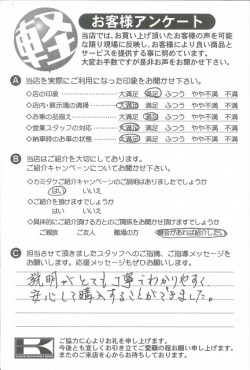 軽
お客様アンケート
当店では、お買い上げ頂いたお客様の声を可能
な限り現場に反映し、お客様により良い商品と
サービスを提供する事に努めています。
大変お手数ですが是非お声をお聞かせ下さい。
A 当店を実際にご利用になった印象をお聞かせ下さい。
◇店の印象 大満足 満足 ふつう やや不満 不満
◇店内・展示場の清掃 大満足 満足 ふつう やや不満 不満
◇お車の品揃え 大満足 満足 ふつう やや不満 不満
◇営業スタッフの対応 大満足 満足 ふつう やや不満 不満
◇納車時のお車の状態 大満足 満足 ふつう やや不満 不満
B 当店はご紹介を大切にしております。
ご紹介キャンペーンについてお聞かせ下さい。
◇カミタケご紹介キャンペーンのご説明はありましたでしょうか
はい いいえ
◇ご紹介を頂けますでしょうか
はい いいえ
◇具体的にご紹介頂ける方とのご関係をお聞かせ頂けますでしょうか
ご親族 ご友人 職場の方 機会があれば紹介したい
C 担当させて頂きましたスタッフへのご指摘、ご指導メッセージを
お願いします。応援メッセージもぜひお願いします。
説明がとても丁寧でわかりやすく、
安心して購入することができました。
K
ご協力に心よりお礼を申し上げます。
今後とも宜しくお引き立てご愛顧の程お願い申し上げます。
またのご来店を心からお待ちしております。